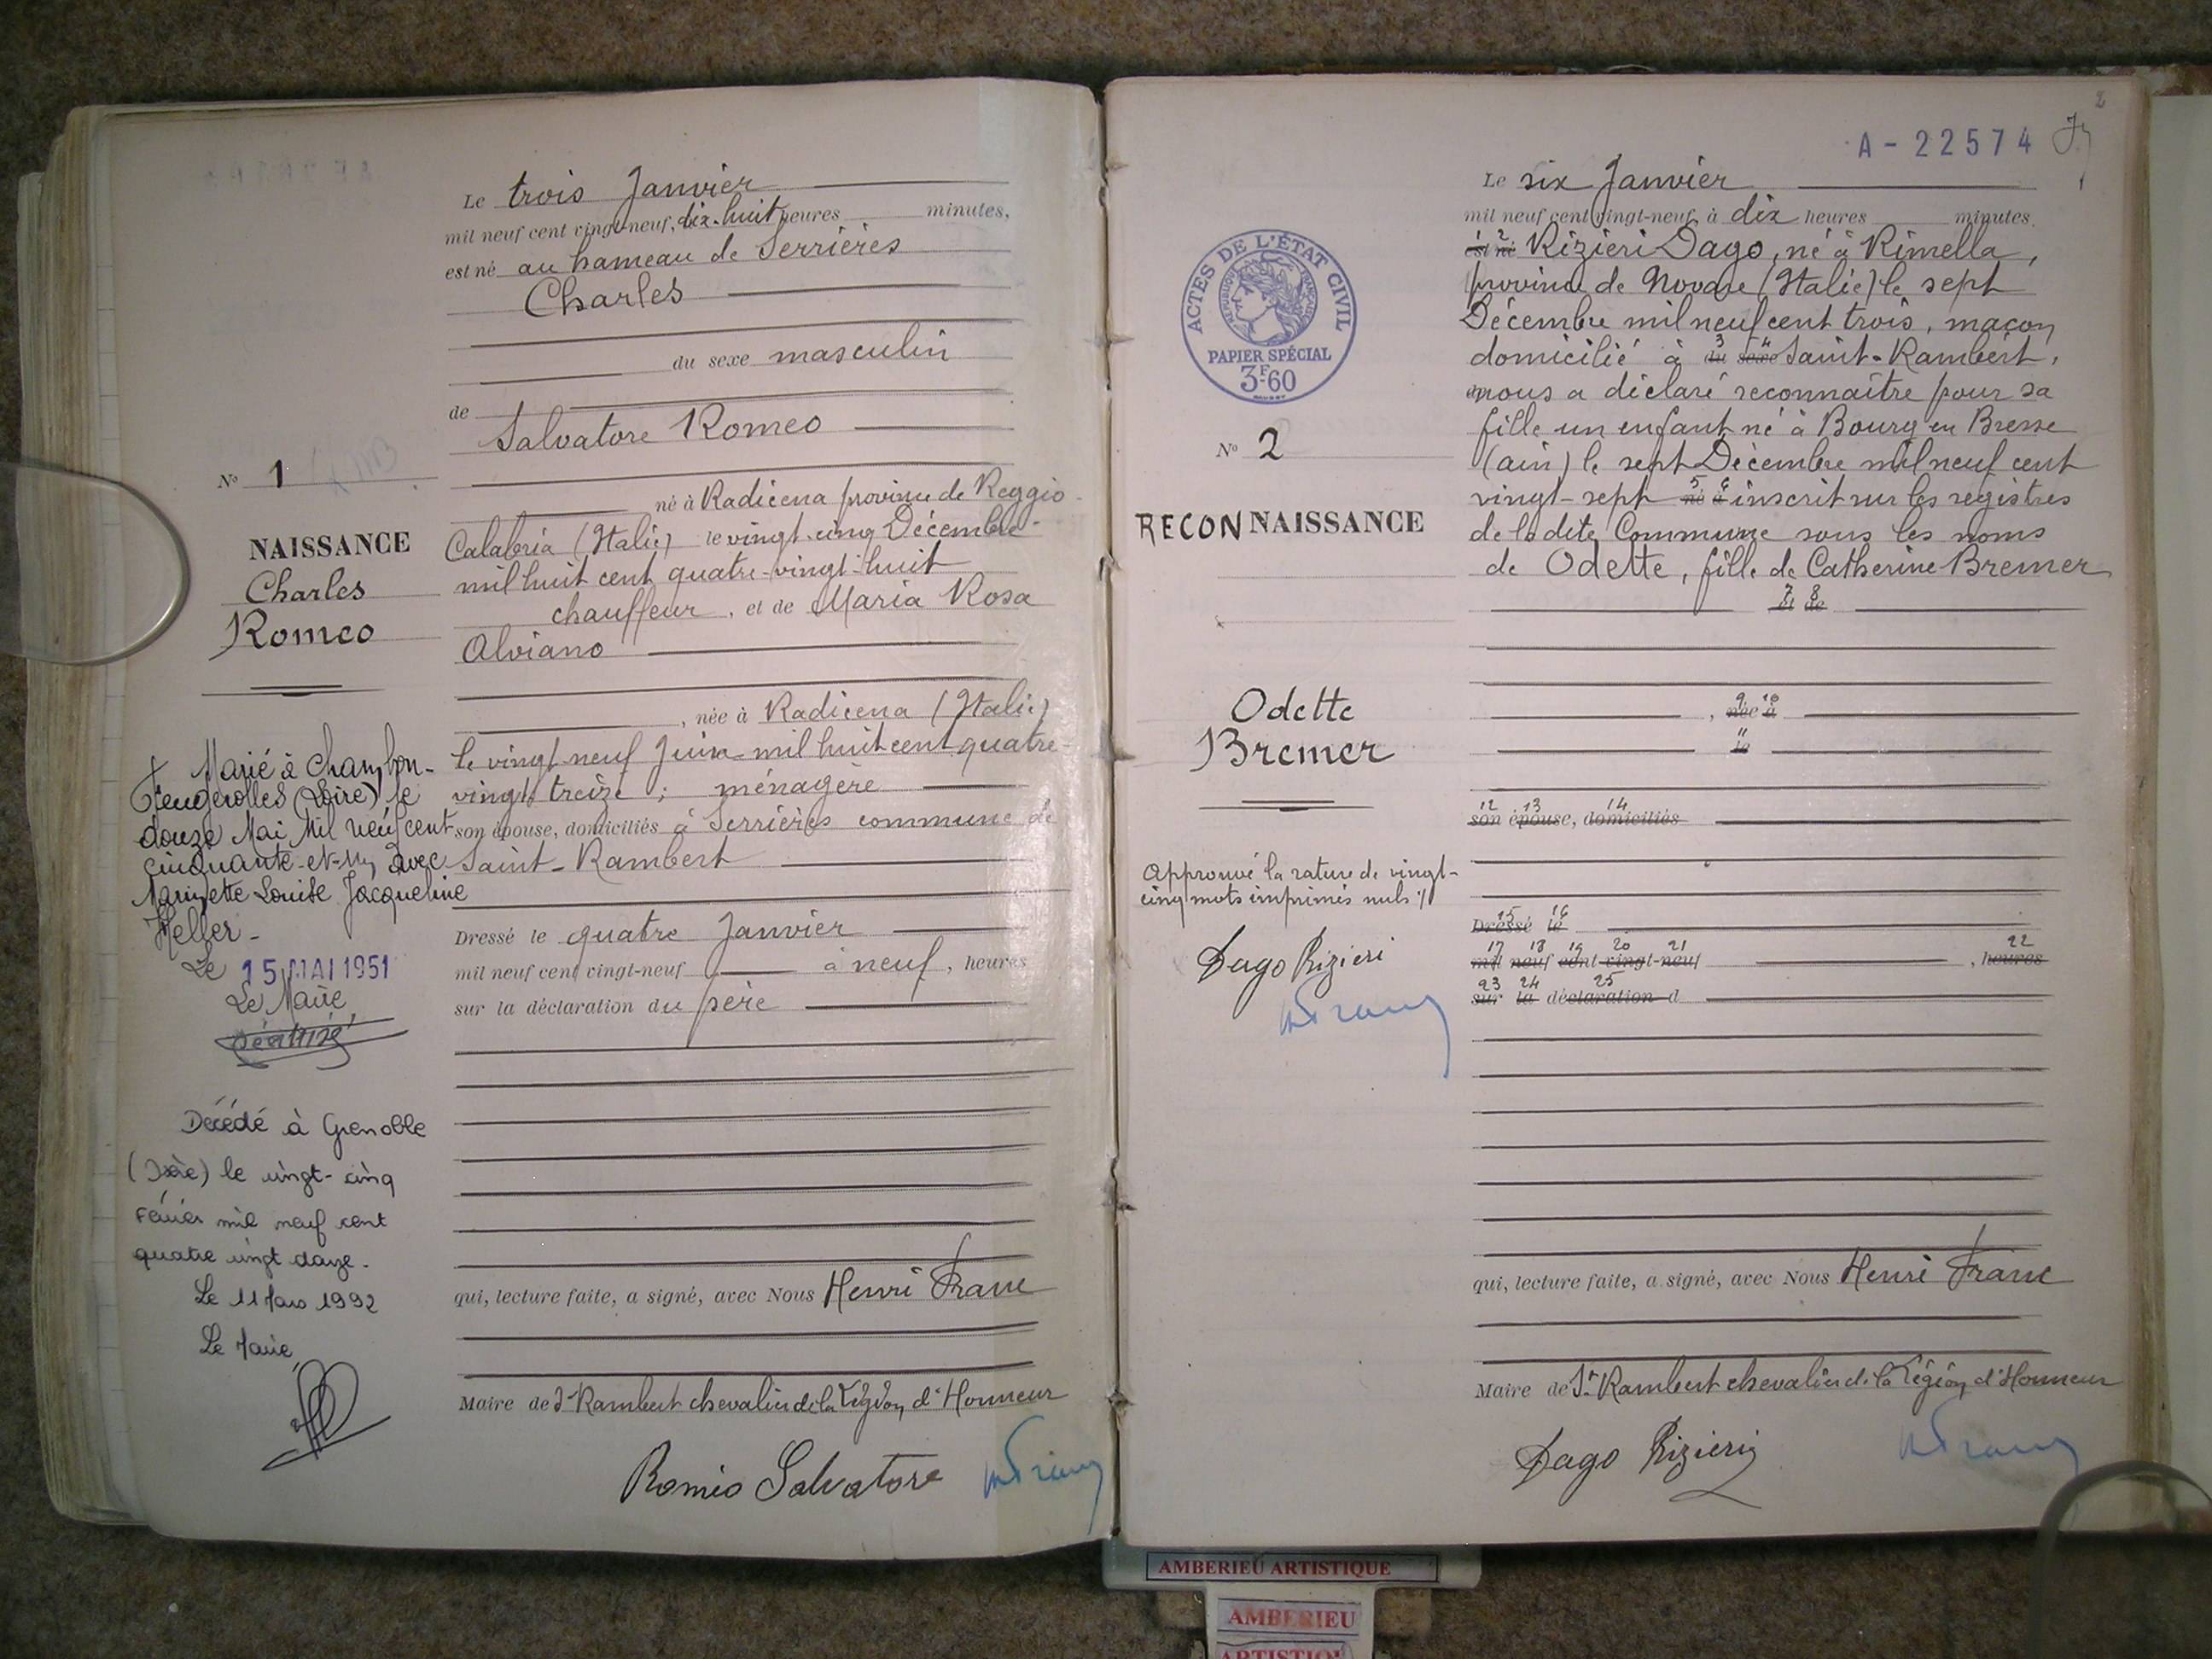 Le trois Janvier
mil neuf cent vingt-neuf, dix-huit heures minutes,
est né au hameau de Serrières
Charles
du sexe masculin
de
Salvatore Romeo
né à Radicena province de Reggio
Calabria (Italie) le vingt-cinq Décembre
mil huit cent quatre-vingt-huit
chauffeur, et de Maria Rosa
Alviano
, née à Radicena (Italie)
le vingt-neuf Juin mil huit cent quatre-
vingt treize ; ménagère
son épouse, domiciliés à Serrières commune de
Saint-Rambert
Dressé le quatre Janvier
mil neuf cent vingt-neuf à neuf, heures
sur la déclaration du père
qui, lecture faite, a signé, avec Nous Henri Franc
Maire de St Rambert chevalier de la Légion d'Honneur
Romeo Salvatore
No 1
NAISSANCE
Charles
Romeo
Marié à Chambon-
Feugerolles (Loire) le
douze Mai Mil neuf cent
cinquante-et-un avec
Marinette Louise Jacqueline
Heller-
Le 15 MAI 1951
Le Maire,
Décédé à Grenoble
(Isère) le vingt-cinq
Février mil neuf cent
quatre vingt douze.
Le 11 Mars 1992
Le Maire,
2
A-22574
Le six Janvier
mil neuf cent vingt-neuf, à dix heures minutes.
est né Rizieri Dago, né à Rimella,
province de Novare (Italie) le sept
Décembre mil neuf cent trois, maçon,
domicilié à du sexe Saint-Rambert,
nous a déclaré reconnaître pour sa
fille un enfant né à Bourg en Bresse
(ain) le sept Décembre mil neuf cent
vingt-sept né à inscrit sur les registres
de ladite Commune sous les noms
de Odette, fille de Catherine Bremer
7 8
et de
9 10
, née à
11
le
12 13 14
son épouse, domiciliés
15 16
Dressé le
17 18 19 20 21 22
mil neuf cent vingt-neuf , heures
23 24 25
sur la déclaration d
qui, lecture faite, a signé, avec Nous Henri Franc
Maire de St Rambert chevalier de la Légion d'Honneur
Dago Rizieri
ACTES DE L'ÉTAT CIVIL
RÉPUBLIQUE FRANÇAISE
PAPIER SPÉCIAL
3F.60
No 2
RECONNAISSANCE
Odette
Bremer
Approuvé la rature de vingt-
cinq mots imprimés nuls
Dago Rizieri
AMBERIEU ARTISTIQUE
AMBERIEU